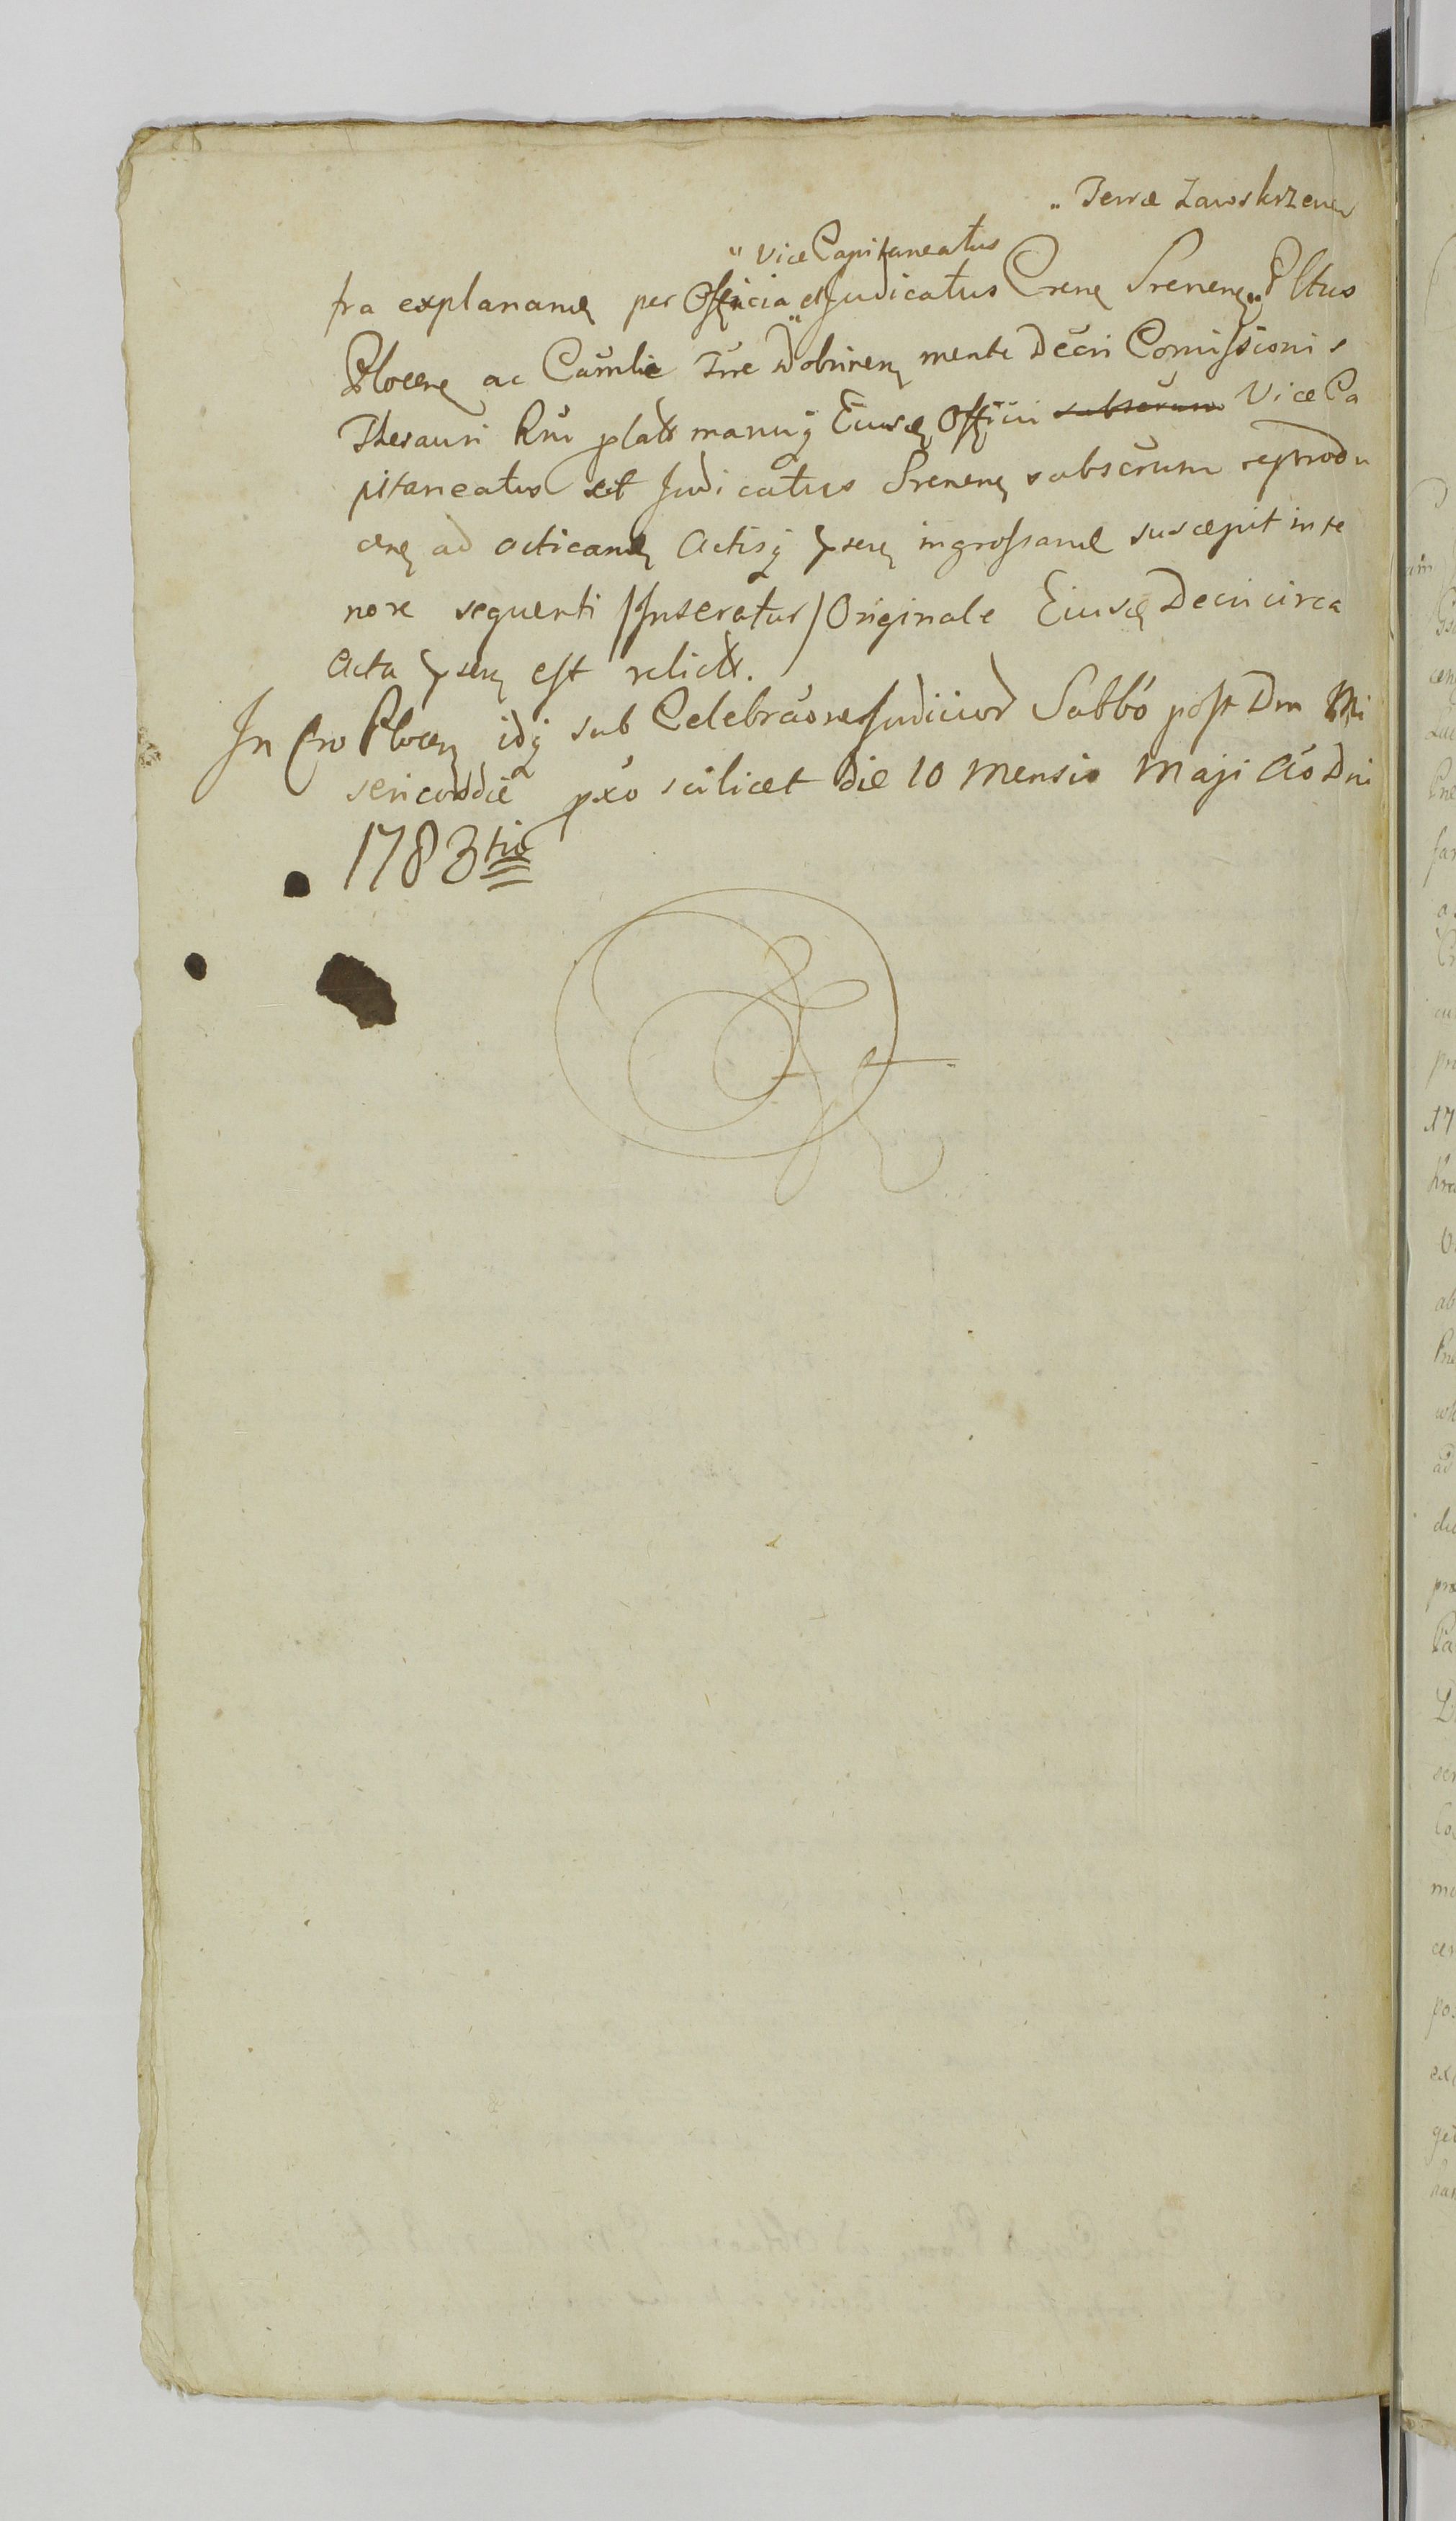 „ Terræ Zawskrzenen
„ Vice Capitaneatus
fra explanand per Officia „ et Judicatus Cren Srenen „ Pltus
Plocen ac Camlie Trre Dobrinen mente Decri Comissionis
Thesauri Rni plati manuq Eiusd Officii subscrum Vice Ca
pitaneatus et Judicatus Srenen subscrum reprodu
cen ad acticand Actisq pser ingrossand suscepit in te
nore sequenti /Inseratur/ Originale Eiusd Decri circa
Acta pser est relict.
In Cro Plocen idq sub Celebraone Judicior Sabbo post Dm Mi
sericordiæ pxo scilicet die 10 Mensis Maji Ao Dni
1783tio